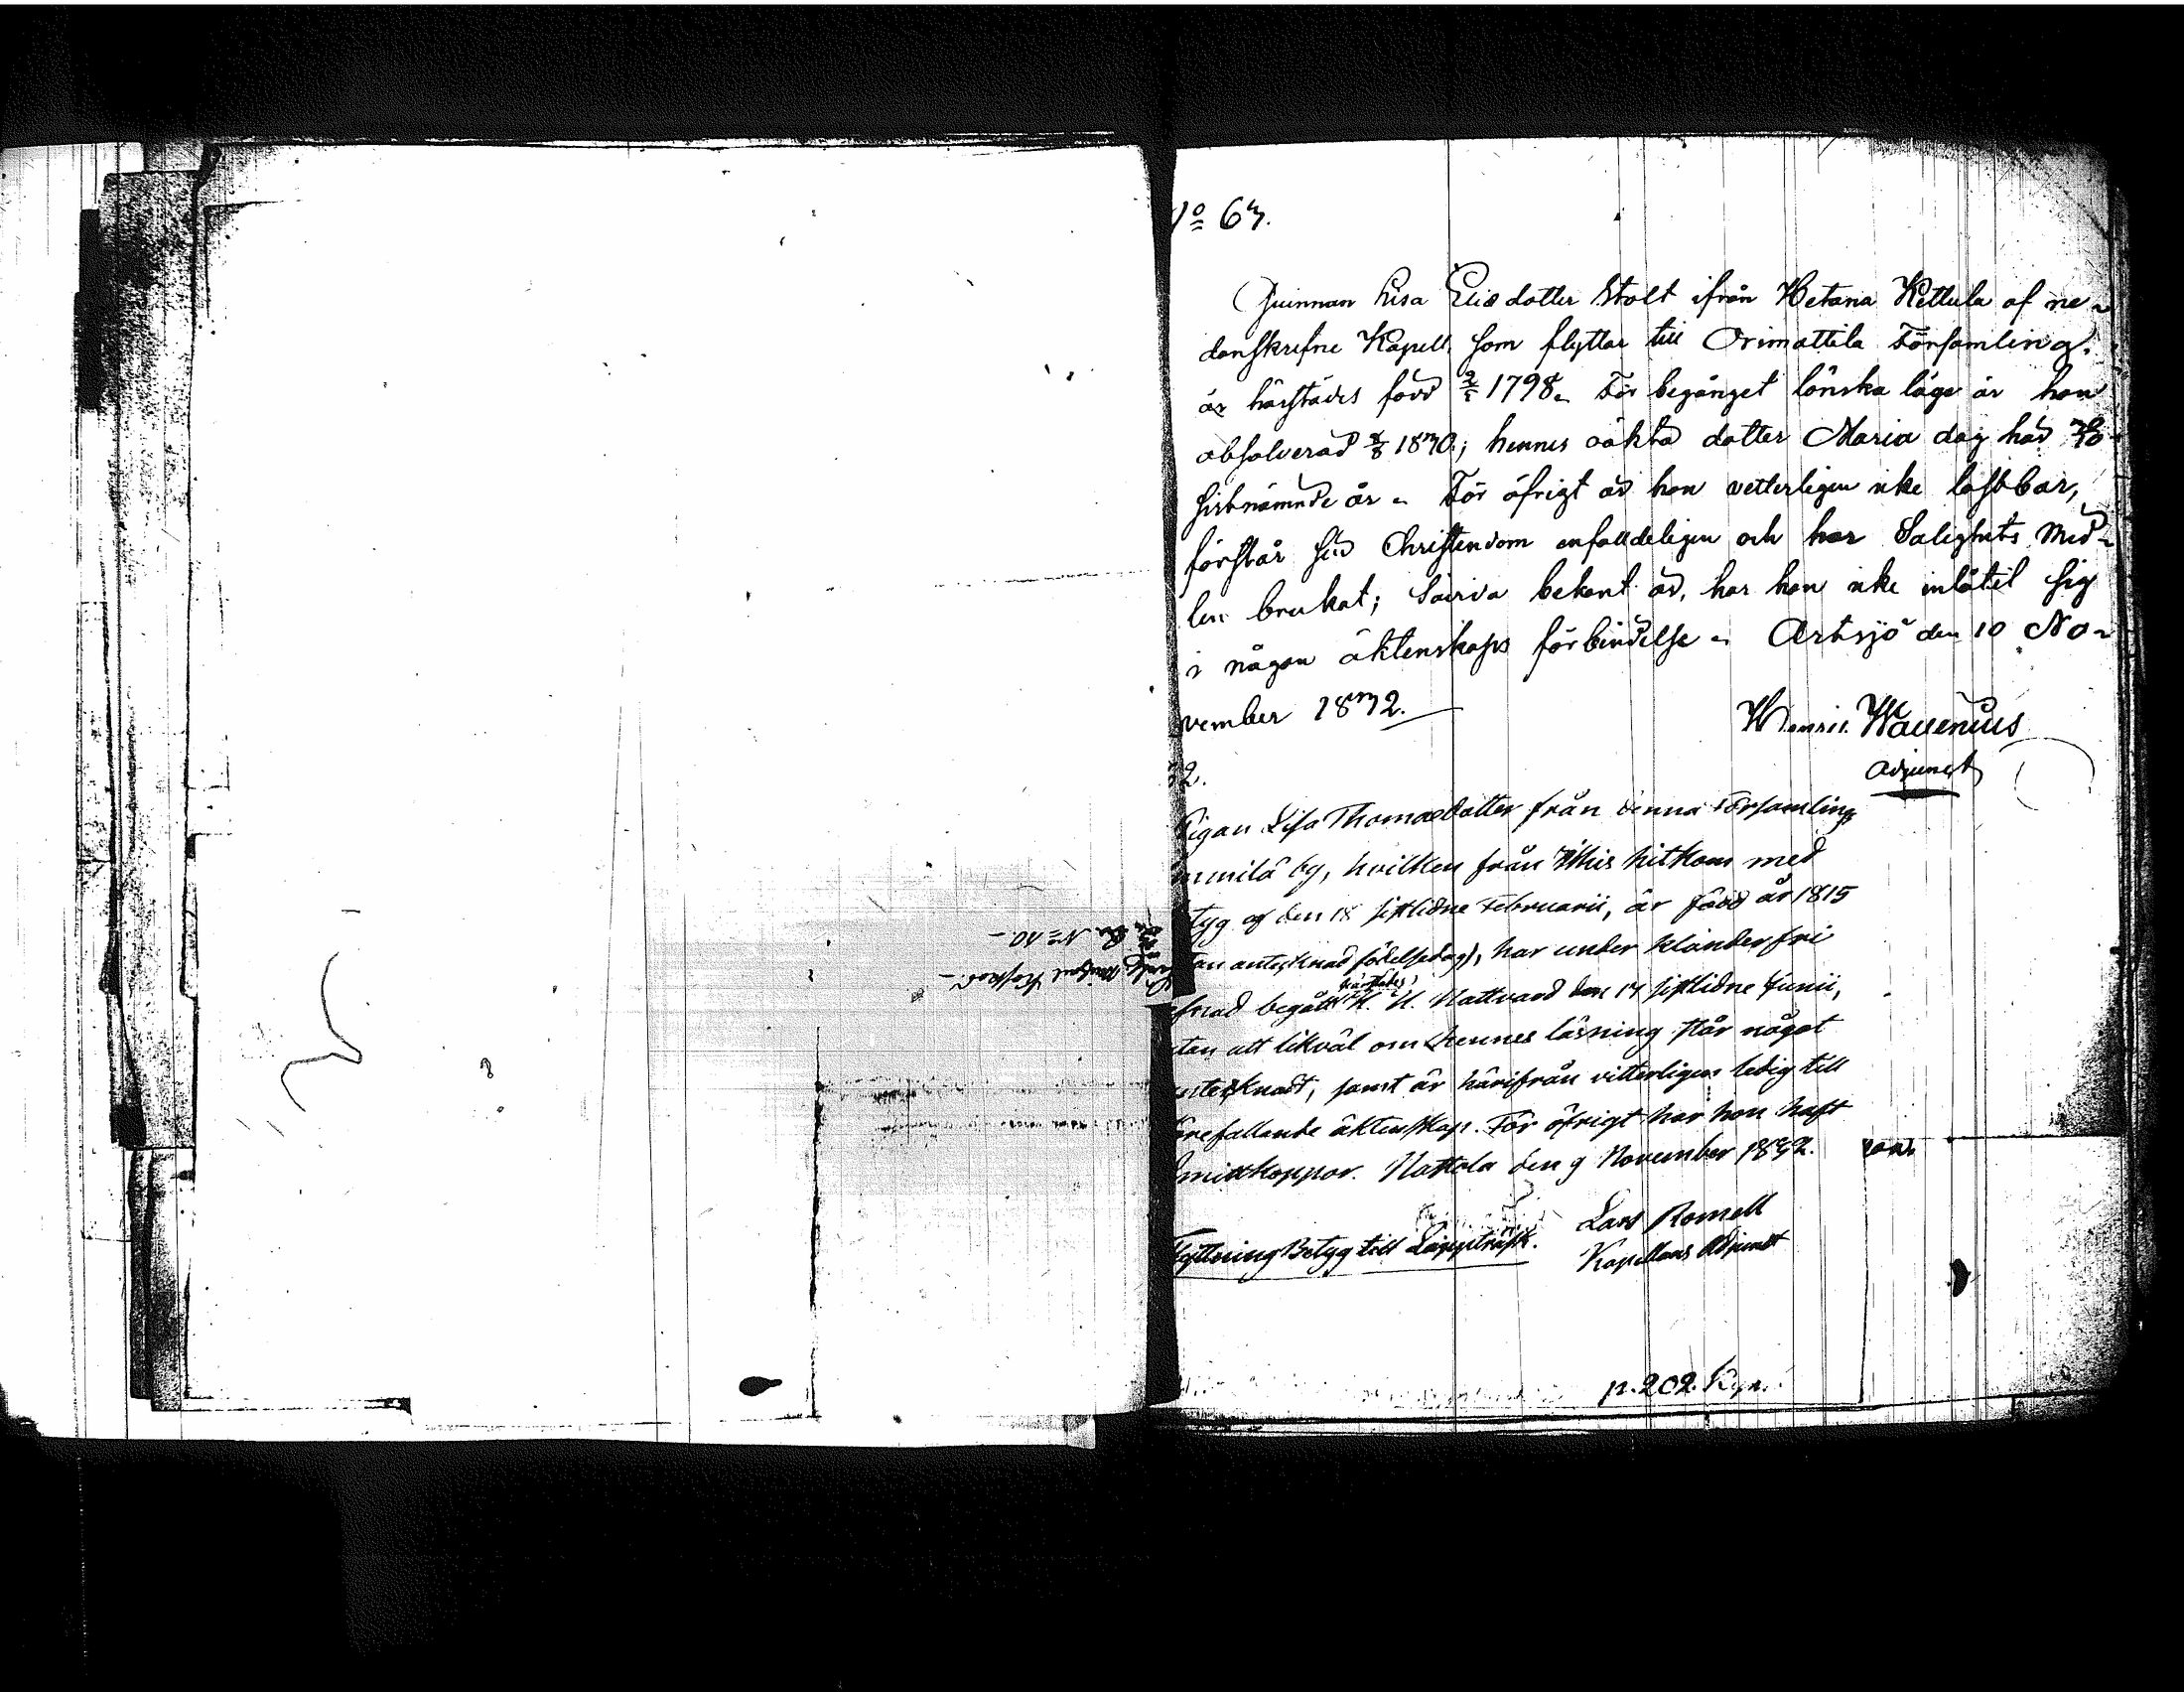 No 63.
Quinnan Lisa Eliæ dotter Stolt ifrån Hetana Kettula af ne-
danskrefne Kapell, som flyttar till Orimattila Församling,
är härstädes född 1798. För begånget lönska läge är hon
absolverad 1830; hennes oäkta dotter Maria dog
sistnämnde år. För öfrigt är hon vetterligen icke läsbar,
förstår sin Christendom enfalldeligen och har Salighets Med-
len brukat; Såvida bekant är, har hon icke inlåtit sig
i någon äktenskaps förbindelse. Artsjö den 10 No-
vember 1832.
Henric Wavenius
Adjunct
32.
Pigan Lisa Thomædotter från denna Församling
by, hvilken från Ithis hitkom med
tyg af den 18 sistlidne Februarii, är född år 1815
tan antecknad födelsedag), har under klanderfri
efnad begått härstädes H. H. Nattvard den 17 sistlidne Junii,
utan att likväl om hennes läsning står något
antecknadt, samt är härifrån vitterligen ledig till
örefallande äktenskap. För öfrigt har hon haft
Smittkoppor. Nastola den 9 November 1832.
Lars Romell
Kapellans Adjunct
Flyttning Betyg till Lappträsk.
p. 202. Kyr.
No 10.